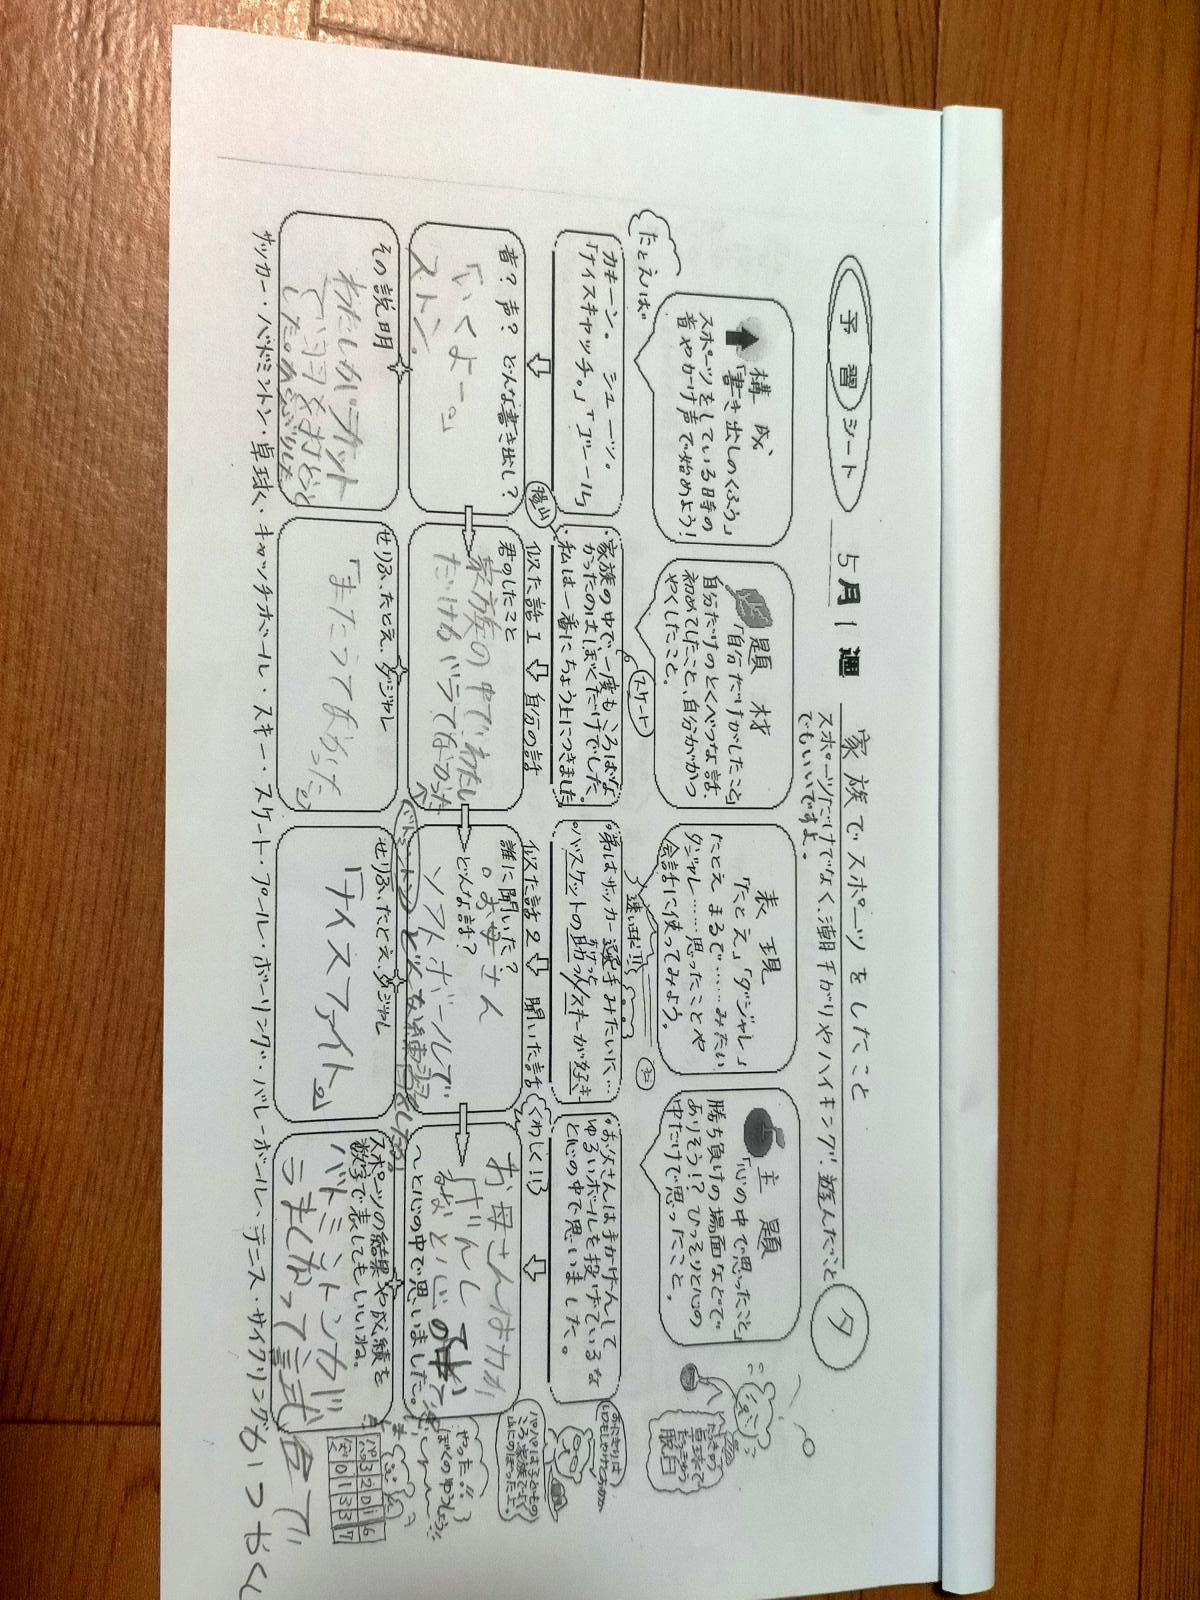 予習シート
5月1週
家族でスポーツをしたこと
スポーツだけでなく、潮干がりやハイキング、遊んだこと
でもいいですよ。
タ
構成
「書き出しのくふう」
スポーツをしている時の
音やかけ声で始めよう!
題材
「自分だけがしたこと」
自分だけのとくべつな話、
初めてしたこと、自分がかつ
やくしたこと。
表現
「たとえ」「ダジャレ」
たとえ まるで……みたい
ダジャレ……思ったことや
会話に使ってみよう。
主題
「心の中で思ったこと」
勝ち負けの場面などで
ありそう!? ひっそりと心の
中だけで思ったこと。
たとえば
カキーン。シューッ。
「ナイスキャッチ。」「ゴール」
スケート
・家族の中で一度もころばな
かったのはぼくだけでした。
登山
・私は一番にちょう上につきました
速い球だ!!
・弟はサッカー選手みたいに…
・バスケットの助っ人/スキーが好き
・お父さんは手かげんして
ゆるいボールを投げているな
と心の中で思いました。
音?声?どんな書き出し?
「いくよー。」
ストン。
似た話1 自分の話
君のしたこと
家族の中でわたし
だけがバラてなかった
似た話2 聞いた話
くわしく!!
誰に聞いた?
お母さん
どんな話?
ソフトボールで
バトミントン
どんな練習をしたか。
お母さんは力か
げんして
るなと心の中
〜と心の中で思いました。
その説明
わたしがラケット
せりふ、たとえ、ダジャレ
「またうてなかった。」
せりふ、たとえ、ダジャレ
「ナイスファイト。」
スポーツの結果や成績を
数字で表してもいいね。
バトミントンが
うまくなって試合で
かつやく
サッカー・バドミントン・卓球・キャッチボール・スキー・スケート・プール・ボーリング・バレーボール・テニス・サイクリング
たっきゅう
卓球で
脱臼
パパは子どもの
ころ家族でよく
山にのぼったよ。
やった!!
ぼくのゆうしょう!!
パパ 3 2 0 1 6
0 1 3 3 7